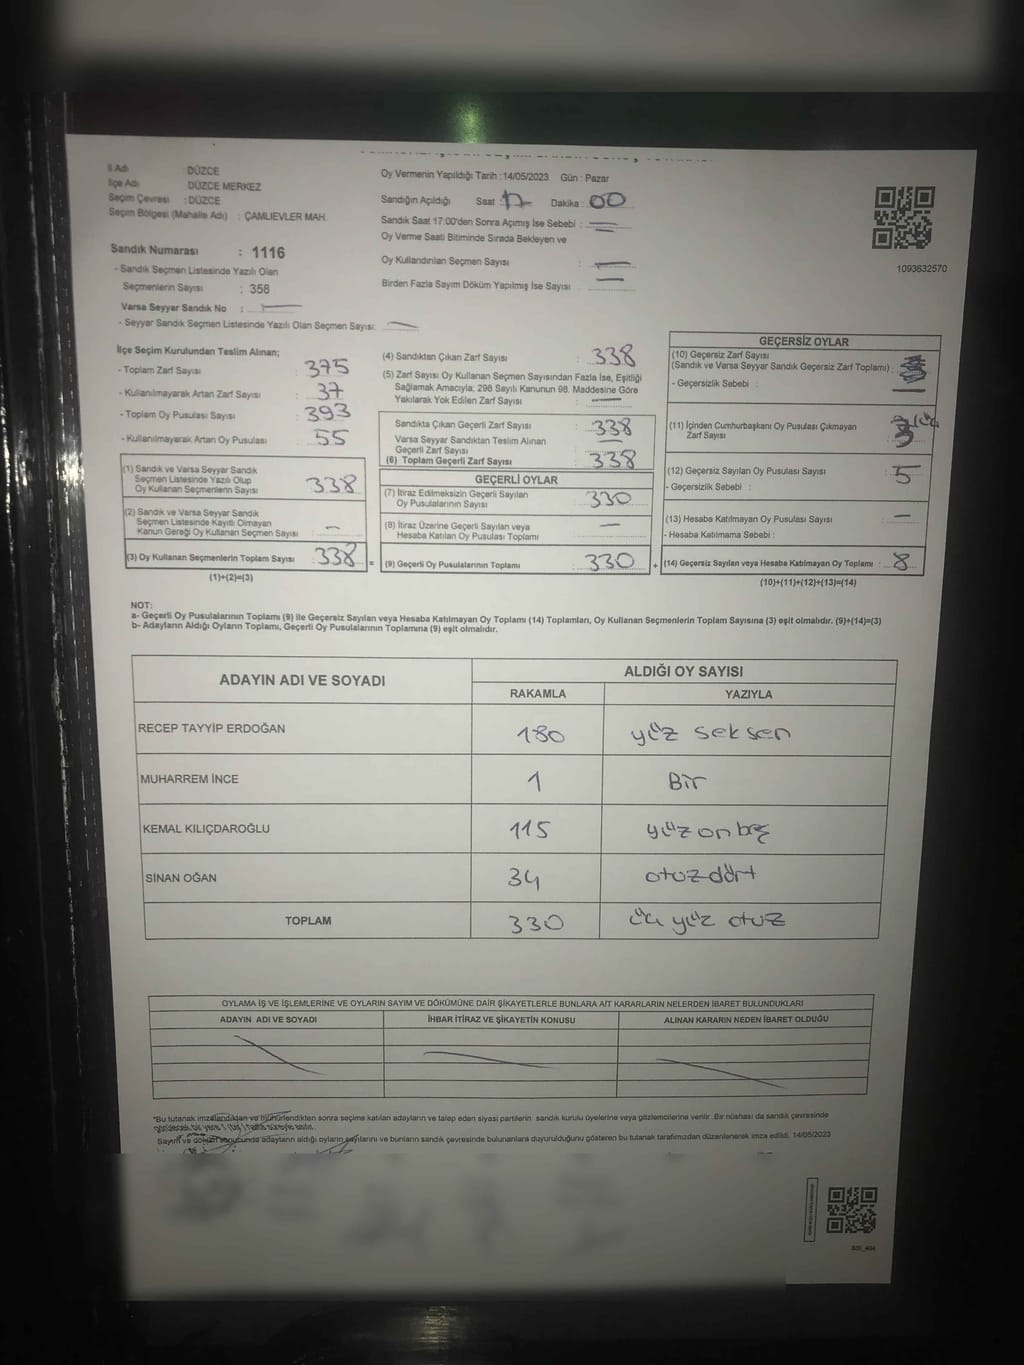 İl Adı DÜZCE
İlçe Adı DÜZCE MERKEZ
Seçim Çevresi : DÜZCE
Seçim Bölgesi (Mahalle Adı) : ÇAMLIEVLER MAH.
Sandık Numarası : 1116
- Sandık Seçmen Listesinde Yazılı Olan
Seçmenlerin Sayısı : 358
Varsa Seyyar Sandık No :
- Seyyar Sandık Seçmen Listesinde Yazılı Olan Seçmen Sayısı:
Oy Vermenin Yapıldığı Tarih : 14/05/2023 Gün : Pazar
Sandığın Açıldığı Saat : 17 Dakika : 00
Sandık Saat 17:00'den Sonra Açımış İse Sebebi :
Oy Verme Saati Bitiminde Sırada Bekleyen ve
Oy Kullandırılan Seçmen Sayısı :
Birden Fazla Sayım Döküm Yapılmış İse Sayısı :
1093632570
İlçe Seçim Kurulundan Teslim Alınan;
- Toplam Zarf Sayısı : 375
- Kullanılmayarak Artan Zarf Sayısı : 37
- Toplam Oy Pusulası Sayısı : 393
- Kullanılmayarak Artan Oy Pusulası : 55
(1) Sandık ve Varsa Seyyar Sandık
Seçmen Listesinde Yazılı Olup
Oy Kullanan Seçmenlerin Sayısı : 338
(2) Sandık ve Varsa Seyyar Sandık
Seçmen Listesinde Kayıtlı Olmayan
Kanun Gereği Oy Kullanan Seçmen Sayısı : -
(3) Oy Kullanan Seçmenlerin Toplam Sayısı : 338 =
(1)+(2)=(3)
(4) Sandıktan Çıkan Zarf Sayısı : 338
(5) Zarf Sayısı Oy Kullanan Seçmen Sayısından Fazla İse, Eşitliği
Sağlamak Amacıyla; 298 Sayılı Kanunun 98. Maddesine Göre
Yakılarak Yok Edilen Zarf Sayısı : -
Sandıkta Çıkan Geçerli Zarf Sayısı : 338
Varsa Seyyar Sandıktan Teslim Alınan
Geçerli Zarf Sayısı : -
(6) Toplam Geçerli Zarf Sayısı : 338
GEÇERLİ OYLAR
(7) İtiraz Edilmeksizin Geçerli Sayılan
Oy Pusulalarının Sayısı : 330
(8) İtiraz Üzerine Geçerli Sayılan veya
Hesaba Katılan Oy Pusulası Toplamı : -
(9) Geçerli Oy Pusulalarının Toplamı : 330 +
GEÇERSİZ OYLAR
(10) Geçersiz Zarf Sayısı
(Sandık ve Varsa Seyyar Sandık Geçersiz Zarf Toplamı) :
- Geçersizlik Sebebi :
(11) İçinden Cumhurbaşkanı Oy Pusulası Çıkmayan
Zarf Sayısı : 3 üç
(12) Geçersiz Sayılan Oy Pusulası Sayısı : 5
- Geçersizlik Sebebi :
(13) Hesaba Katılmayan Oy Pusulası Sayısı : -
- Hesaba Katılmama Sebebi :
(14) Geçersiz Sayılan veya Hesaba Katılmayan Oy Toplamı : 8
(10)+(11)+(12)+(13)=(14)
NOT:
a- Geçerli Oy Pusulalarının Toplamı (9) ile Geçersiz Sayılan veya Hesaba Katılmayan Oy Toplamı (14) Toplamları, Oy Kullanan Seçmenlerin Toplam Sayısına (3) eşit olmalıdır. (9)+(14)=(3)
b- Adayların Aldığı Oyların Toplamı, Geçerli Oy Pusulalarının Toplamına (9) eşit olmalıdır.
ADAYIN ADI VE SOYADI ALDIĞI OY SAYISI
RAKAMLA YAZIYLA
RECEP TAYYİP ERDOĞAN 180 yüz seksen
MUHARREM İNCE 1 Bir
KEMAL KILIÇDAROĞLU 115 yüz on beş
SİNAN OĞAN 34 otuz dört
TOPLAM 330 üç yüz otuz
OYLAMA İŞ VE İŞLEMLERİNE VE OYLARIN SAYIM VE DÖKÜMÜNE DAİR ŞİKAYETLERLE BUNLARA AİT KARARLARIN NELERDEN İBARET BULUNDUKLARI
ADAYIN ADI VE SOYADI İHBAR İTİRAZ VE ŞİKAYETİN KONUSU ALINAN KARARIN NEDEN İBARET OLDUĞU
*Bu tutanak imzalandıktan ve mühürlendikten sonra seçime katılan adayların ve talep eden siyasi partilerin sandık kurulu üyelerine veya gözlemcilerine verilir. Bir nüshası da sandık çevresinde
Sayım ve döküm sonucunda adayların aldığı oyların sayılarını ve bunların sandık çevresinde bulunanlara duyurulduğunu gösteren bu tutanak tarafımızdan düzenlenerek imza edildi. 14/05/2023